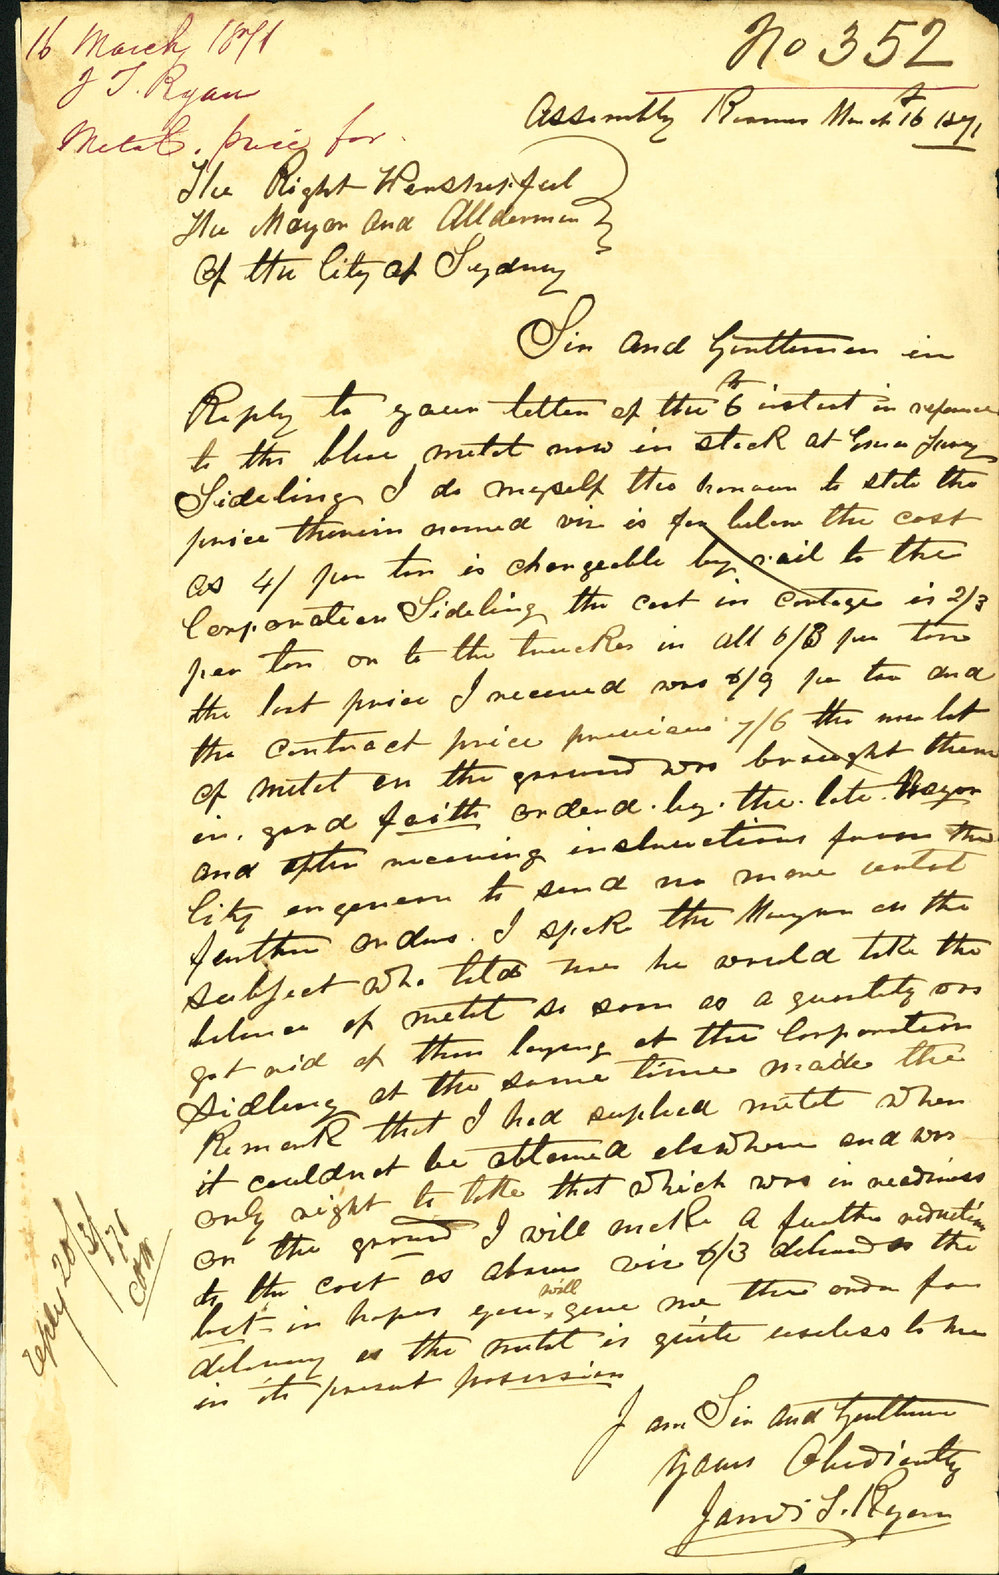 16 March 1871
J T. Ryan
Metal. price for
No 352
Assembly Rooms March 16th 1871
The Right Worshipful
The Mayor and Allderman
of the City of Sydney
Sir and Gentlemen in
Reply to your letter of the 6th instant in
to the blue metal now in stack at
Sideling I do myself the honour to state the
price therein named viz is far below the cost
as 4/ per ton is chargeable by rail to the
Corporation Sideling the cost in cartage is 2/3
per ton on to the truckes in all 6/3 per ton
the last price I received was 6/9 per ton and
the contract price previous 7/6 the
of metal on the ground was brought there
in. good faith orderd. by. the. late. Mayor
and after receiving instructions from the
City to send no more until
further orders. I spoke the Mayor on the
subject who told me he would take the
balance of metal so soon as a quantity was
got rid of then laying at the Corporation
Sidling at the same time made the
Remark that I had suplied metal when
it couldnot be obtained elswhere and was
only right to take that which was in readiness
on the ground I will make a further reduction
to the cost as above viz 6/3 to the
in hopes you will give me the order for
delivery as the metal is quite useless to me
in its present possession
I am Sir and Gentlemen
yours Obediently
James T. Ryan
reply 20/3/71